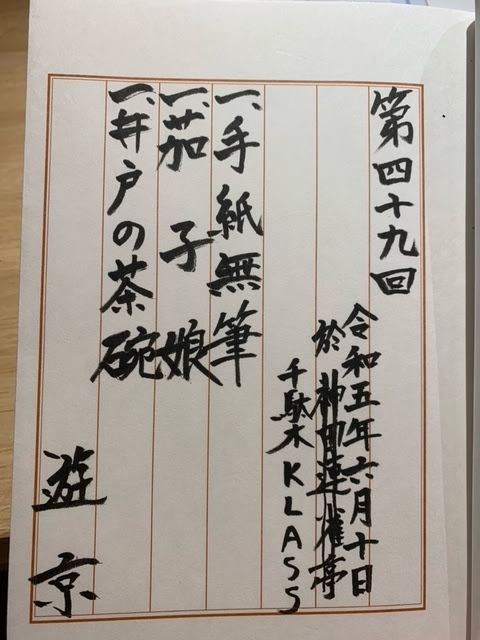 第四十九回
令和五年六月十日
於 神田連雀亭
千駄木KLASS
一、手紙無筆
一、茄子娘
一、井戸の茶碗
遊京